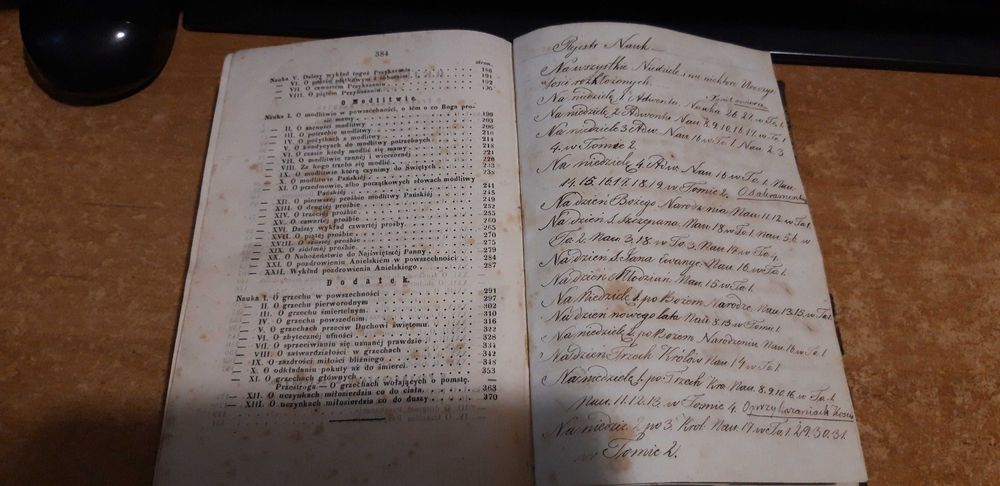 384
stron.
Nauka V. Dalszy wykład tegoż Przykazania 188
— VI. O poście piątkowym i sobotnim 191
— VII. O czwartem Przykazaniu 192
— VIII. O piątém Przykazaniu 196
O Modlitwie.
Nauka I. O modlitwie w powszechności, o tém o co Boga pro-
sić mamy 199
— II. O zacności modlitwy 203
— III. O potrzebie modlitwy 206
— IV. O pożytkach z modlitwy 210
— V. O kondycyach do modlitwy potrzebnych 214
— VI. O czasie kiedy modlić się mamy 218
— VII. O modlitwie rannéj i wieczornéj 221
— VIII. Za kogo trzeba się modlić 226
— IX. O modlitwie którą czynimy do Świętych 230
— X. O modlitwie Pańskiéj 235
— XI. O przedmowie, albo początkowych słowach modlitwy
Pańskiéj 241
— XII. O pierwszéj prośbie modlitwy Pańskiéj 245
— XIII. O drugiéj prośbie 249
— XIV. O trzeciéj prośbie 252
— XV. O czwartéj prośbie 255
— XVI. Dalszy wykład czwartéj prośby 260
— XVII. O piątéj prośbie 265
— XVIII. O szóstéj prośbie 270
— XIX. O siódméj prośbie 275
— XX. O Nabożeństwie do Najświętszéj Panny 279
— XXI. O pozdrowieniu Anielskiém w powszechności 284
— XXII. Wykład pozdrowienia Anielskiego 287
Dodatek.
Nauka I. O grzechu w powszechności 291
— II. O grzechu pierworodnym 297
— III. O grzechu śmiertelnym 302
— IV. O grzechu powszednim 310
— V. O grzechach przeciw Duchowi świętemu 316
— VI. O zbyteczney ufności 322
— VII. O sprzeciwianiu się uznanéj prawdzie 328
— VIII. O zatwardziałości w grzechach 334
— IX. O zazdrości miłości bliźniego 342
— X. O odkładaniu pokuty aż do śmierci 348
— XI. O grzechach głównych 353
Przestroga — O grzechach wołających o pomstę
— XII. O uczynkach miłosierdzia co do ciała 363
— XIII. O uczynkach miłosierdzia co do duszy 370
Rejestr Nauk
Na wszystkie Niedziele i na niektóre Uroczys
tości rozłożonych.
Na niedzielę 1 Adwentu Nauka 26. 27. w To. 1.
Na niedzielę 2 Adwentu Nau. 8. 9. 10. 16. 17. w To. 1
Na niedzielę 3 Adw. Nau. 16 w To. 1. Nau. 2. 3
4. w Tomie 2.
Na niedzielę 4 Adw. Nau. 16 w To. 1. Nau.
14. 15. 16. 17. 18. 19 w Tomie 2. O Sakramenta
Na dzień Bożego Narodzenia Nau. 11. 12. w To. 1
Na dzień S. Szczepana. Nau. 18 w To. 1. nau. 5. 6. w
To. 2. Nau. 3. 18. w To. 3. Nau. 17 w To. 4.
Na dzień S. Jana Ewange. Nau. 16 w To. 1.
Na dzień Młodzian. Nau. 15 w To. 1.
Na Niedzielę 1. po Bożem Narodze. Nau. 13. 15. w To. 1
Na dzień nowego lata Nau. 8. 13 w Tomie 1.
Na niedzielę 2. po Bożem Narodzeniu Nau. 16 w To. 1
Na dzień Trzech Królów Nau. 14 w To. 1.
Na niedzielę 1. po Trzech Kró. Nau. 8. 9. 10. 16. w To. 1.
Nau. 11. 12. 13. w Tomie 4. O przykazaniach Kościel
Na niedzielę 2 po 3. Król. Nau. 17 w To. 1. 29. 30. 31.
w Tomie 2.